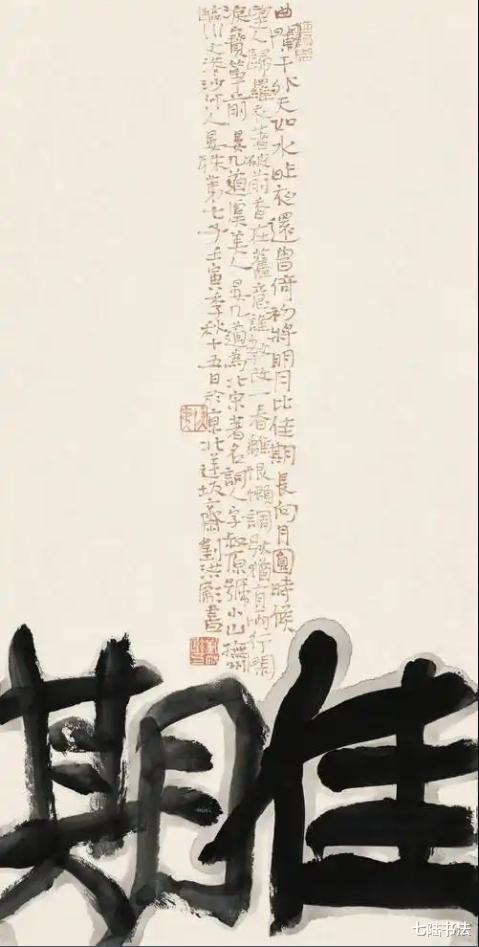 曲闌干外天如水昨夜還曾倚初將明月比佳期長向月圓時候
望人歸羅衣著破前香在舊意誰教改一春離恨懶調弦猶有兩行閑
淚寶箏前 晏几道虞美人 晏几道為北宋著名詞人字叔原號小山撫州
臨川文港沙河人晏殊第七子壬寅季秋十五日於京北齋劉洪彪書
佳期
七陆书法